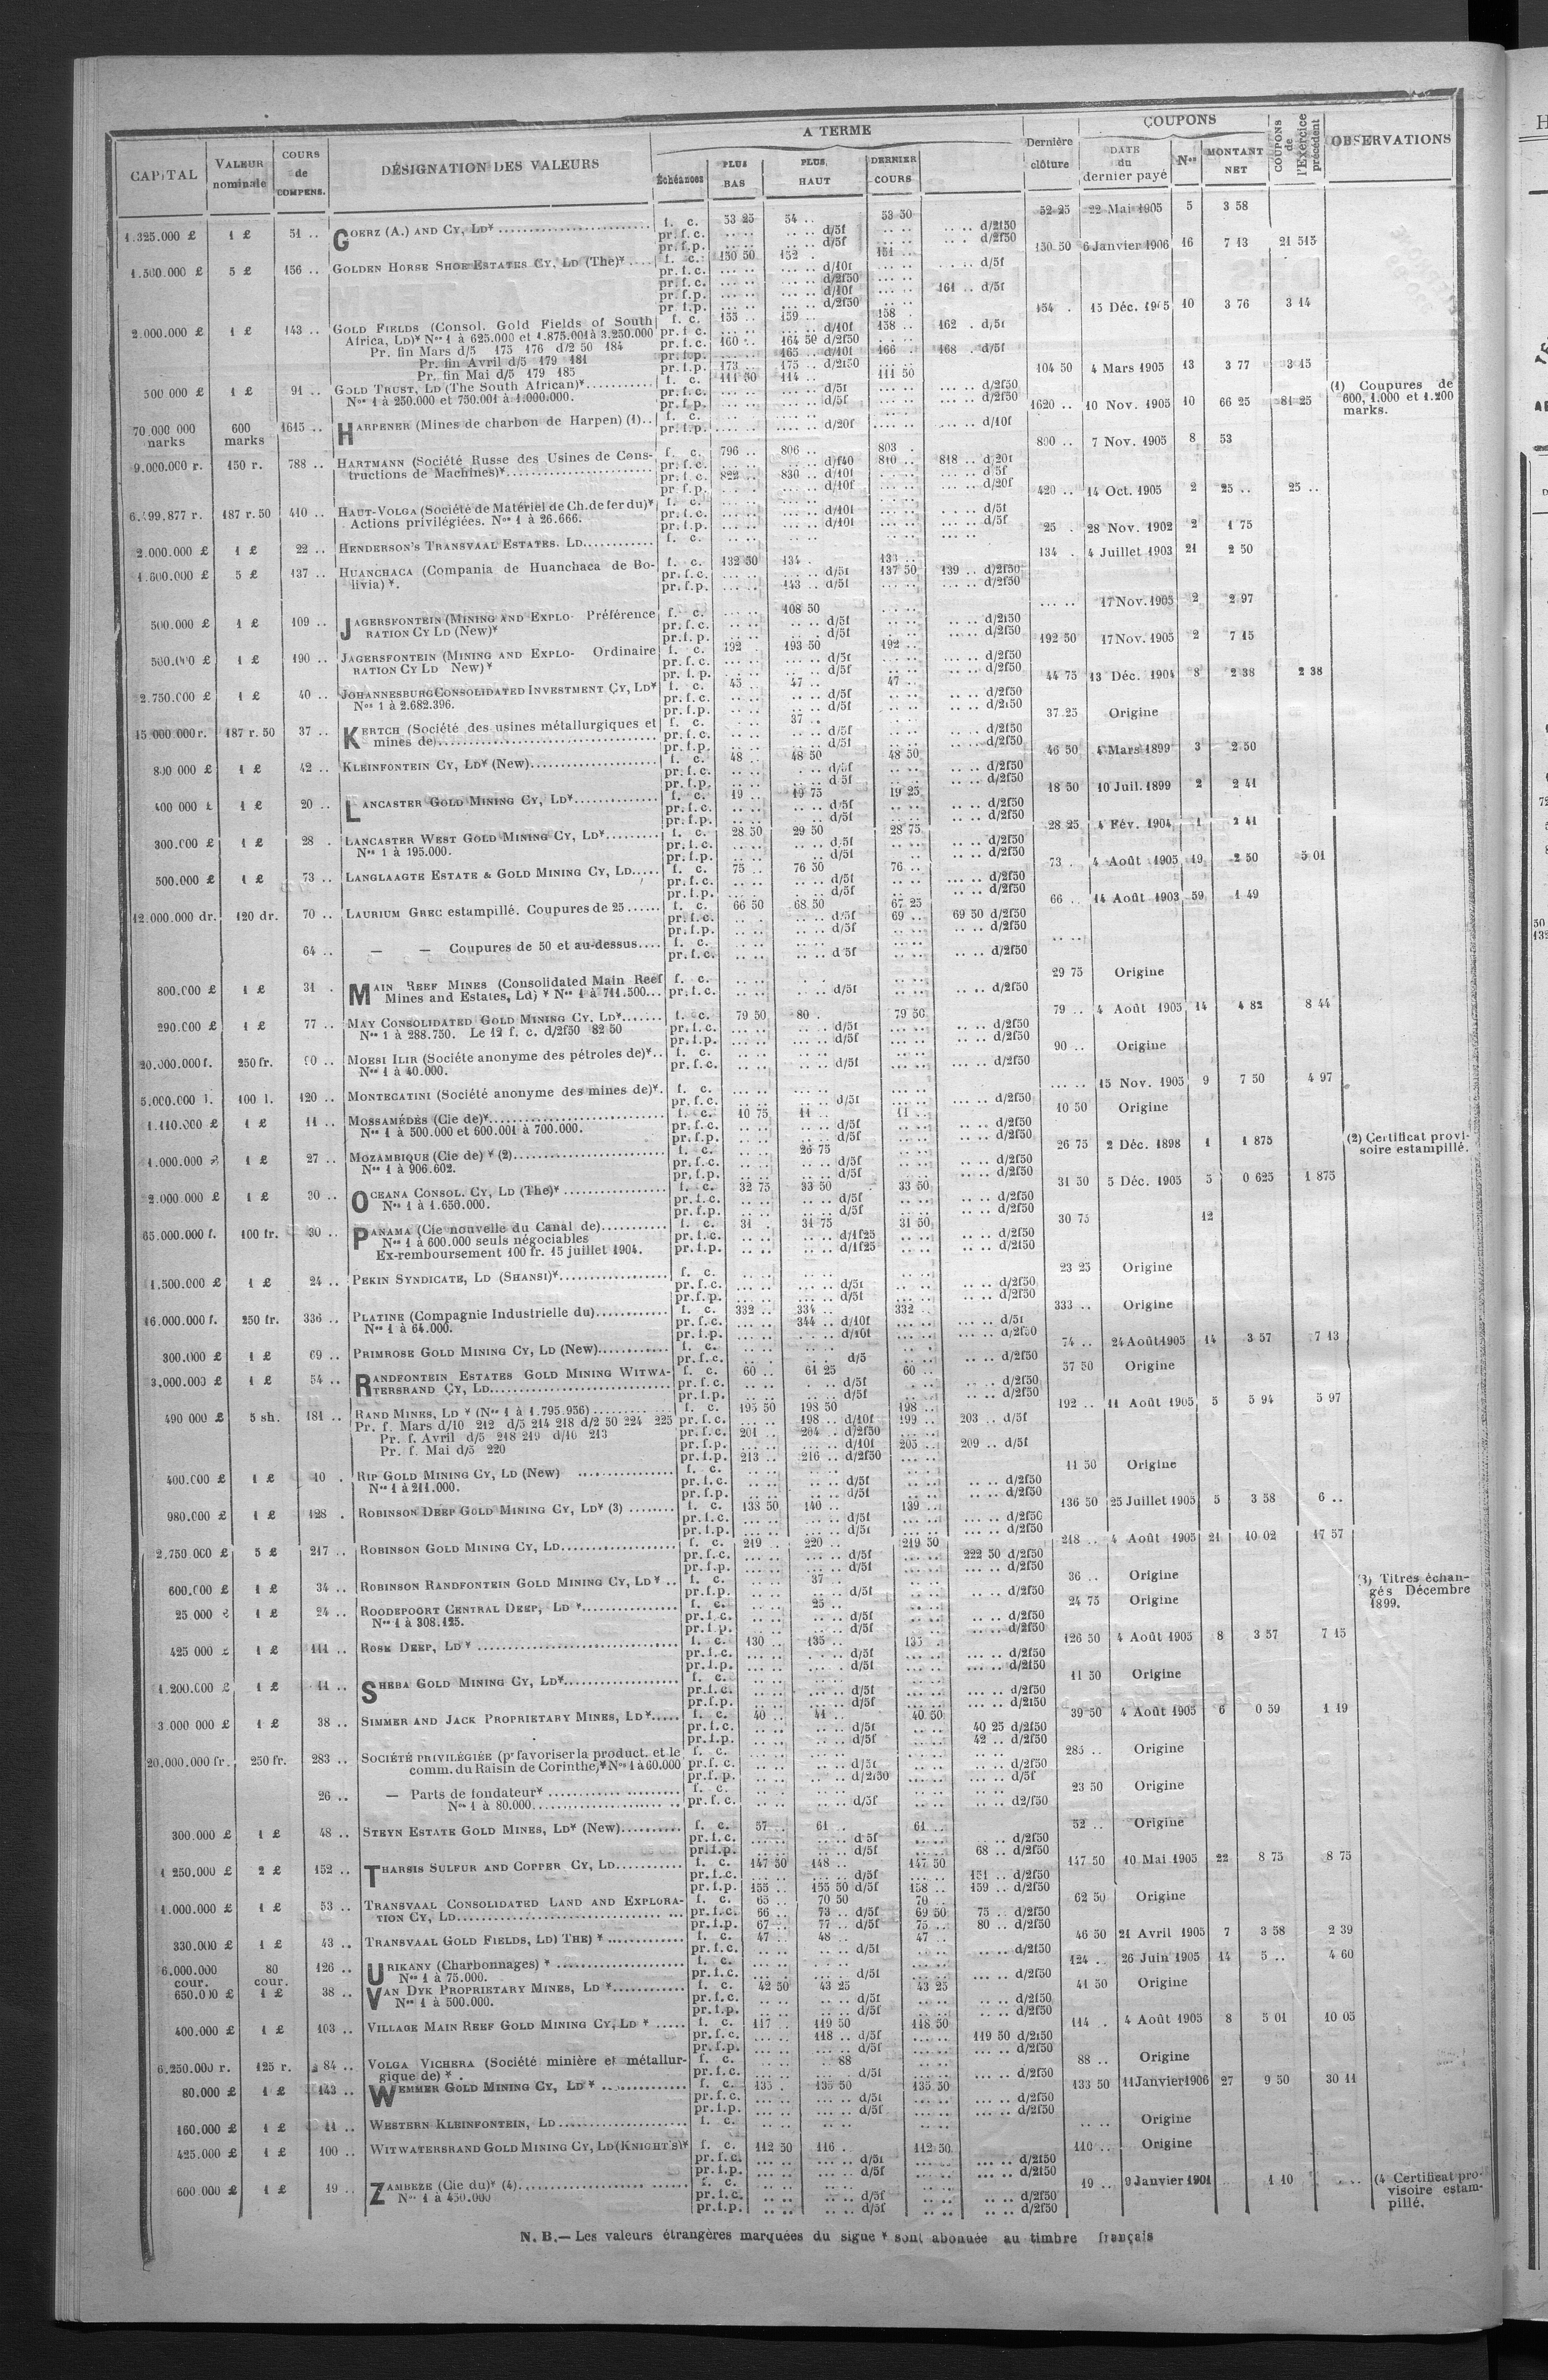 CAPITAL | VALEUR nominale | COURS de COMPENS. | DÉSIGNATION DES VALEURS | A TERME | Dernière clôture | COUPONS | COUPONS de l'Exercice précédent | OBSERVATIONS
Échéances | PLUS BAS | PLUS HAUT | DERNIER COURS | DATE du dernier payé | Nos | MONTANT NET
1.325.000 £ 1 £ 51 .. GOERZ (A.) AND CY, LD* f. c. 53 25 54 .. 53 50 52 25 22 Mai 1905 5 3 58
pr. f. c. d/5f d/2f50
pr. f. p. d/5f d/2f50
1.500.000 £ 5 £ 156 .. GOLDEN HORSE SHOE ESTATES CY, LD (The)* f. c. 150 50 152 . 151 .. 150 50 6 Janvier 1906 16 7 13 21 515
pr. f. c. d/10f d/5f
pr. f. c. d/2f50
pr. f. p. d/10f 161 .. d/5f
pr. f. p. d/2f50
2.000.000 £ 1 £ 143 .. GOLD FIELDS (Consol. Gold Fields of South f. c. 155 .. 159 .. 158 . 154 . 15 Déc. 1905 10 3 76 3 14
Africa, LD)* Nos 1 à 625.000 et 1.875.001 à 3.250.000 pr. f. c. d/10f 158 .. 162 . d/5f
Pr. fin Mars d/5 175 176 d/2 50 184 pr. f. c. 160 .. 164 50 d/2f50
Pr. fin Avril d/5 179 181 pr. f. p. 165 .. d/10f 166 .. 168 . d/5f
Pr. fin Mai d/5 179 185 pr. f. p. 173 .. 175 .. d/2f50
500 000 £ 1 £ 91 .. GOLD TRUST, LD (The South African)* f. c. 111 50 114 .. 111 50 104 50 4 Mars 1905 13 3 77 3 15
Nos 1 à 250.000 et 750.001 à 1.000.000. pr. f. c. d/5f d/2f50
pr. f. p. d/5f d/2f50
(1) Coupures de
600, 1.000 et 1.200
marks.
70.000 000 marks 600 marks 1615 .. HARPENER (Mines de charbon de Harpen) (1).. f. c. 1620 .. 10 Nov. 1905 10 66 25 81 25
pr. f. p. d/20f d/10f
9.000.000 r. 150 r. 788 .. HARTMANN (Société Russe des Usines de Cons- f. c. 796 .. 806 .. 803 . 800 .. 7 Nov. 1905 8 53
tructions de Machines)* pr. f. c. d/f40 810 .. 818 .. d/20f
pr. f. c. 822 .. 830 .. d/10f d 5f
pr. f. p. d/10f d/20f
6.499.877 r. 187 r. 50 410 .. HAUT-VOLGA (Société de Matériel de Ch. de fer du)* f. c. 420 .. 14 Oct. 1905 2 25 .. 25 ..
Actions privilégiées. Nos 1 à 26.666. pr. f. c. d/10f d/5f
pr. f. p. d/10f d/5f
2.000.000 £ 1 £ 22 .. HENDERSON'S TRANSVAAL ESTATES. LD f. c. 25 . 28 Nov. 1902 2 1 75
1.600.000 £ 5 £ 137 .. HUANCHACA (Compania de Huanchaca de Bo- f. c. 132 50 134 . 133 .. 134 . 4 Juillet 1903 21 2 50
livia) *. pr. f. c. d/5f 137 50 139 .. d/2f50
pr. f. p. 143 .. d/5f d/2f50
500.000 £ 1 £ 109 .. JAGERSFONTEIN (MINING AND EXPLO- Préférence f. c. 108 50 17 Nov. 1905 2 2 97
RATION CY LD (New)* pr. f. c. d/5f d/2f50
pr. f. p. d/5f d/2f50
500.000 £ 1 £ 190 .. JAGERSFONTEIN (MINING AND EXPLO- Ordinaire f. c. 192 . 193 50 192 .. 192 50 17 Nov. 1905 2 7 15
RATION CY LD New)* pr. f. c. d/5f d/2f50
pr. f. p. d/5f d/2f50
2.750.000 £ 1 £ 40 .. JOHANNESBURG CONSOLIDATED INVESTMENT CY, LD* f. c. 45 . 47 .. 47 . 44 75 13 Déc. 1904 8 2 38 2 38
Nos 1 à 2.682.396. pr. f. c. d/5f d/2f50
pr. f. p. d/5f d/2f50
15 000 000 r. 187 r. 50 37 .. KERTCH (Société des usines métallurgiques et f. c. 37 .. 37 25 Origine
mines de) pr. f. c. d/5f d/2f50
pr. f. p. d/5f d/2f50
800 000 £ 1 £ 42 .. KLEINFONTEIN CY, LD* (New) f. c. 48 .. 48 50 48 50 46 50 4 Mars 1899 3 2 50
pr. f. c. d/5f d/2f50
pr. f. p. d 5f d/2f50
400 000 £ 1 £ 20 .. LANCASTER GOLD MINING CY, LD* f. c. 19 .. 19 75 19 25 18 50 10 Juil. 1899 2 2 41
pr. f. c. d/5f d/2f50
pr. f. p. d/5f d/2f50
300.000 £ 1 £ 28 . LANCASTER WEST GOLD MINING CY, LD* f. c. 28 50 29 50 28 75 28 25 4 Fév. 1904 1 2 41
Nos 1 à 195.000. pr. f. c. d/5f d/2f50
pr. f. p. d/5f d/2f50
500.000 £ 1 £ 73 .. LANGLAAGTE ESTATE & GOLD MINING CY, LD f. c. 75 .. 76 50 76 .. 73 . 4 Août 1905 19 2 50 5 01
pr. f. c. d/5f d/2f50
pr. f. p. d/5f d/2f50
12.000.000 dr. 120 dr. 70 .. LAURIUM GREC estampillé. Coupures de 25 f. c. 66 50 68 50 67 25 66 .. 14 Août 1903 59 1 49
pr. f. c. d/5f 69 .. 69 50 d/2f50
pr. f. p. d/5f d/2f50
64 .. — — Coupures de 50 et au-dessus f. c.
pr. f. c. d 5f d/2f50
800.000 £ 1 £ 31 . MAIN REEF MINES (Consolidated Main Reef f. c. 29 75 Origine
Mines and Estates, Ld) * Nos 1 à 711.500 pr. f. c. d/5f d/2f50
290.000 £ 1 £ 77 .. MAY CONSOLIDATED GOLD MINING CY, LD* f. c. 79 50 80 . 79 50 79 .. 4 Août 1905 14 4 82 8 44
Nos 1 à 288.750. Le 12 f. c. d/2f50 82 50 pr. f. c. d/5f d/2f50
pr. f. p. d/5f d/2f50
20.000.000 f. 250 fr. 90 .. MOESI ILIR (Société anonyme des pétroles de)* f. c. 90 .. Origine
Nos 1 à 40.000. pr. f. c. d/5f d/2f50
5.000.000 l. 100 l. 120 .. MONTECATINI (Société anonyme des mines de)* f. c. 15 Nov. 1905 9 7 50 4 97
pr. f. c. d/5f d/2f50
1.110.000 £ 1 £ 11 .. MOSSAMÉDÈS (Cie de)* f. c. 10 75 11 .. 11 .. 10 50 Origine
Nos 1 à 500.000 et 600.001 à 700.000. pr. f. c. d/5f d/2f50
pr. f. p. d/5f d/2f50
1.000.000 £ 1 £ 27 .. MOZAMBIQUE (Cie de) * (2) f. c. 26 75 26 75 2 Déc. 1898 1 1 875
Nos 1 à 906.602. pr. f. c. d/5f d/2f50
pr. f. p. d/5f d/2f50
(2) Certificat provi-
soire estampillé.
2.000.000 £ 1 £ 30 .. OCEANA CONSOL. CY, LD (The)* f. c. 32 75 33 50 33 50 31 50 5 Déc. 1905 5 0 625 1 875
Nos 1 à 1.650.000. pr. f. c. d/5f d/2f50
pr. f. p. d/5f d/2f50
65.000.000 f. 100 fr. 30 .. PANAMA (Cie nouvelle du Canal de) f. c. 31 . 31 75 31 50 30 75 12
Nos 1 à 600.000 seuls négociables pr. f. c. d/1f25 d/2f50
Ex-remboursement 100 fr. 15 juillet 1904. pr. f. p. d/1f25 d/2f50
1.500.000 £ 1 £ 24 .. PEKIN SYNDICATE, LD (SHANSI)* f. c. 23 25 Origine
pr. f. c. d/5f d/2f50
pr. f. p. d/5f d/2f50
16.000.000 f. 250 fr. 336 .. PLATINE (Compagnie Industrielle du) f. c. 332 .. 334 .. 332 .. 333 .. Origine
Nos 1 à 64.000. pr. f. c. 344 .. d/10f d/5f
pr. f. p. d/10f d/2f50
300.000 £ 1 £ 69 .. PRIMROSE GOLD MINING CY, LD (New) f. c. 74 .. 24 Août 1905 14 3 57 7 13
pr. f. c. d/5 d/2f50
3,000.000 £ 1 £ 54 .. RANDFONTEIN ESTATES GOLD MINING WITWA- f. c. 60 .. 61 25 60 .. 57 50 Origine
TERSRAND CY, LD pr. f. c. d/5f d/2f50
pr. f. p. d/5f d/2f50
490 000 £ 5 sh. 181 .. RAND MINES, LD * (Nos 1 à 1.795.956) f. c. 195 50 198 50 198 .. 192 .. 11 Août 1905 5 5 94 5 97
Pr. f. Mars d/10 212 d/5 214 218 d/2 50 224 225 pr. f. c. 198 .. d/10f 199 .. 203 .. d/5f
Pr. f. Avril d/5 218 219 d/10 213 pr. f. c. 201 .. 204 .. d/2f50
Pr. f. Mai d/5 220 pr. f. p. d/10f 205 .. 209 .. d/5f
pr. f. p. 213 .. 216 .. d/2f50
400.000 £ 1 £ 10 . RIP GOLD MINING CY, LD (New) f. c. 11 50 Origine
Nos 1 à 211.000. pr. f. c. d/5f d/2f50
pr. f. p. d/5f d/2f50
980.000 £ 1 £ 128 . ROBINSON DEEP GOLD MINING CY, LD* (3) f. c. 138 50 140 .. 139 .. 136 50 25 Juillet 1905 5 3 58 6 ..
pr. f. c. d/5f d/2f50
pr. f. p. d/5f d/2f50
2.750 000 £ 5 £ 217 .. ROBINSON GOLD MINING CY, LD f. c. 219 .. 220 .. 219 50 218 .. 4 Août 1905 21 10 02 17 57
pr. f. c. d/5f 222 50 d/2f50
pr. f. p. d/5f d/2f50
600.000 £ 1 £ 34 .. ROBINSON RANDFONTEIN GOLD MINING CY, LD * f. c. 37 .. 36 .. Origine
pr. f. p. d/5f d/2f50
(3) Titres échan-
gés Décembre
1899.
25 000 £ 1 £ 24 .. ROODEPOORT CENTRAL DEEP, LD * f. c. 25 .. 24 75 Origine
Nos 1 à 308.125. pr. f. c. d/5f d/2f50
pr. f. p. d/5f d/2f50
425 000 £ 1 £ 111 .. ROSE DEEP, LD * f. c. 130 .. 135 .. 135 . 126 50 4 Août 1905 8 3 57 7 15
pr. f. c. d/5f d/2f50
pr. f. p. d/5f d/2f50
1.200.000 £ 1 £ 11 .. SHEBA GOLD MINING CY, LD* f. c. 11 50 Origine
pr. f. c. d/5f d/2f50
pr. f. p. d/5f d/2f50
3.000 000 £ 1 £ 38 .. SIMMER AND JACK PROPRIETARY MINES, LD* f. c. 40 .. 41 .. 40 50 39 50 4 Août 1905 6 0 59 1 19
pr. f. c. d/5f 40 25 d/2f50
pr. f. p. d/5f 42 .. d/2f50
20.000.000 fr. 250 fr. 283 .. SOCIÉTÉ PRIVILÉGIÉE (pr favoriser la product. et le f. c. 285 .. Origine
comm. du Raisin de Corinthe)* Nos 1 à 60.000 pr. f. c. d/5f d/2f50
pr. f. p. d/2f50 d/5f
26 .. — Parts de fondateur* f. c. 23 50 Origine
Nos 1 à 80.000 pr. f. c. d/5f d2/f50
300.000 £ 1 £ 48 .. STEYN ESTATE GOLD MINES, LD* (New) f. c. 57 .. 61 .. 61 .. 52 .. Origine
pr. f. c. d 5f d/2f50
pr. f. p. d/5f 68 .. d/2f50
1 250.000 £ 2 £ 152 .. THARSIS SULFUR AND COPPER CY, LD f. c. 147 50 148 .. 147 50 147 50 10 Mai 1905 22 8 75 8 75
pr. f. c. d/5f 151 .. d/2f50
pr. f. p. 155 .. 155 50 d/5f 158 .. 159 .. d/2f50
1.000.000 £ 1 £ 53 .. TRANSVAAL CONSOLIDATED LAND AND EXPLORA- f. c. 65 .. 70 50 70 .. 62 50 Origine
TION CY, LD pr. f. c. 66 .. 73 .. d/5f 69 50 75 .. d/2f50
pr. f. p. 67 .. 77 .. d/5f 75 .. 80 .. d/2f50
330.000 £ 1 £ 43 .. TRANSVAAL GOLD FIELDS, LD) THE) * f. c. 47 .. 48 .. 47 .. 46 50 21 Avril 1905 7 3 58 2 39
pr. f. c. d/5f d/2f50
6.000.000 cour. 80 cour. 126 .. URIKANY (Charbonnages) * f. c. 124 .. 26 Juin 1905 14 5 .. 4 60
Nos 1 à 75.000. pr. f. c. d/5f d/2f50
650.000 £ 1 £ 38 .. VAN DYK PROPRIETARY MINES, LD * f. c. 42 50 43 25 43 25 41 50 Origine
Nos 1 à 500.000. pr. f. c. d/5f d/2f50
pr. f. p. d/5f d/2f50
400.000 £ 1 £ 103 .. VILLAGE MAIN REEF GOLD MINING CY, LD * f. c. 117 .. 119 50 118 50 114 . 4 Août 1905 8 5 01 10 05
pr. f. c. 118 .. d/5f 119 50 d/2f50
pr. f. p. d/5f d/2f50
6.250.000 r. 125 r. 84 .. VOLGA VICHERA (Société minière et métallur- f. c. 88 88 .. Origine
gique de) * . pr. f. c. d/5f d/2f50
80.000 £ 1 £ 143 .. WEMMER GOLD MINING CY, LD * f. c. 135 . 135 50 135 50 133 50 11 Janvier 1906 27 9 50 30 11
pr. f. c. d/5f d/2f50
pr. f. p. d/5f d/2f50
160.000 £ 1 £ 11 .. WESTERN KLEINFONTEIN, LD f. c. Origine
425.000 £ 1 £ 100 .. WITWATERSRAND GOLD MINING CY, LD (KNIGHT'S)* f. c. 112 50 116 . 112 50 110 .. Origine
pr. f. c. d/5f d/2f50
pr. f. p. d/5f d/2f50
600 000 £ 1 £ 19 .. ZAMBEZE (Cie du)* (4) f. c. 19 .. 9 Janvier 1901 1 10
Nos 1 à 450.000 pr. f. c. d/5f d/2f50
pr. f. p. d/5f d/2f50
(4 Certificat pro-
visoire estam-
pillé.
N. B.— Les valeurs étrangères marquées du signe * sont abonuée au timbre français